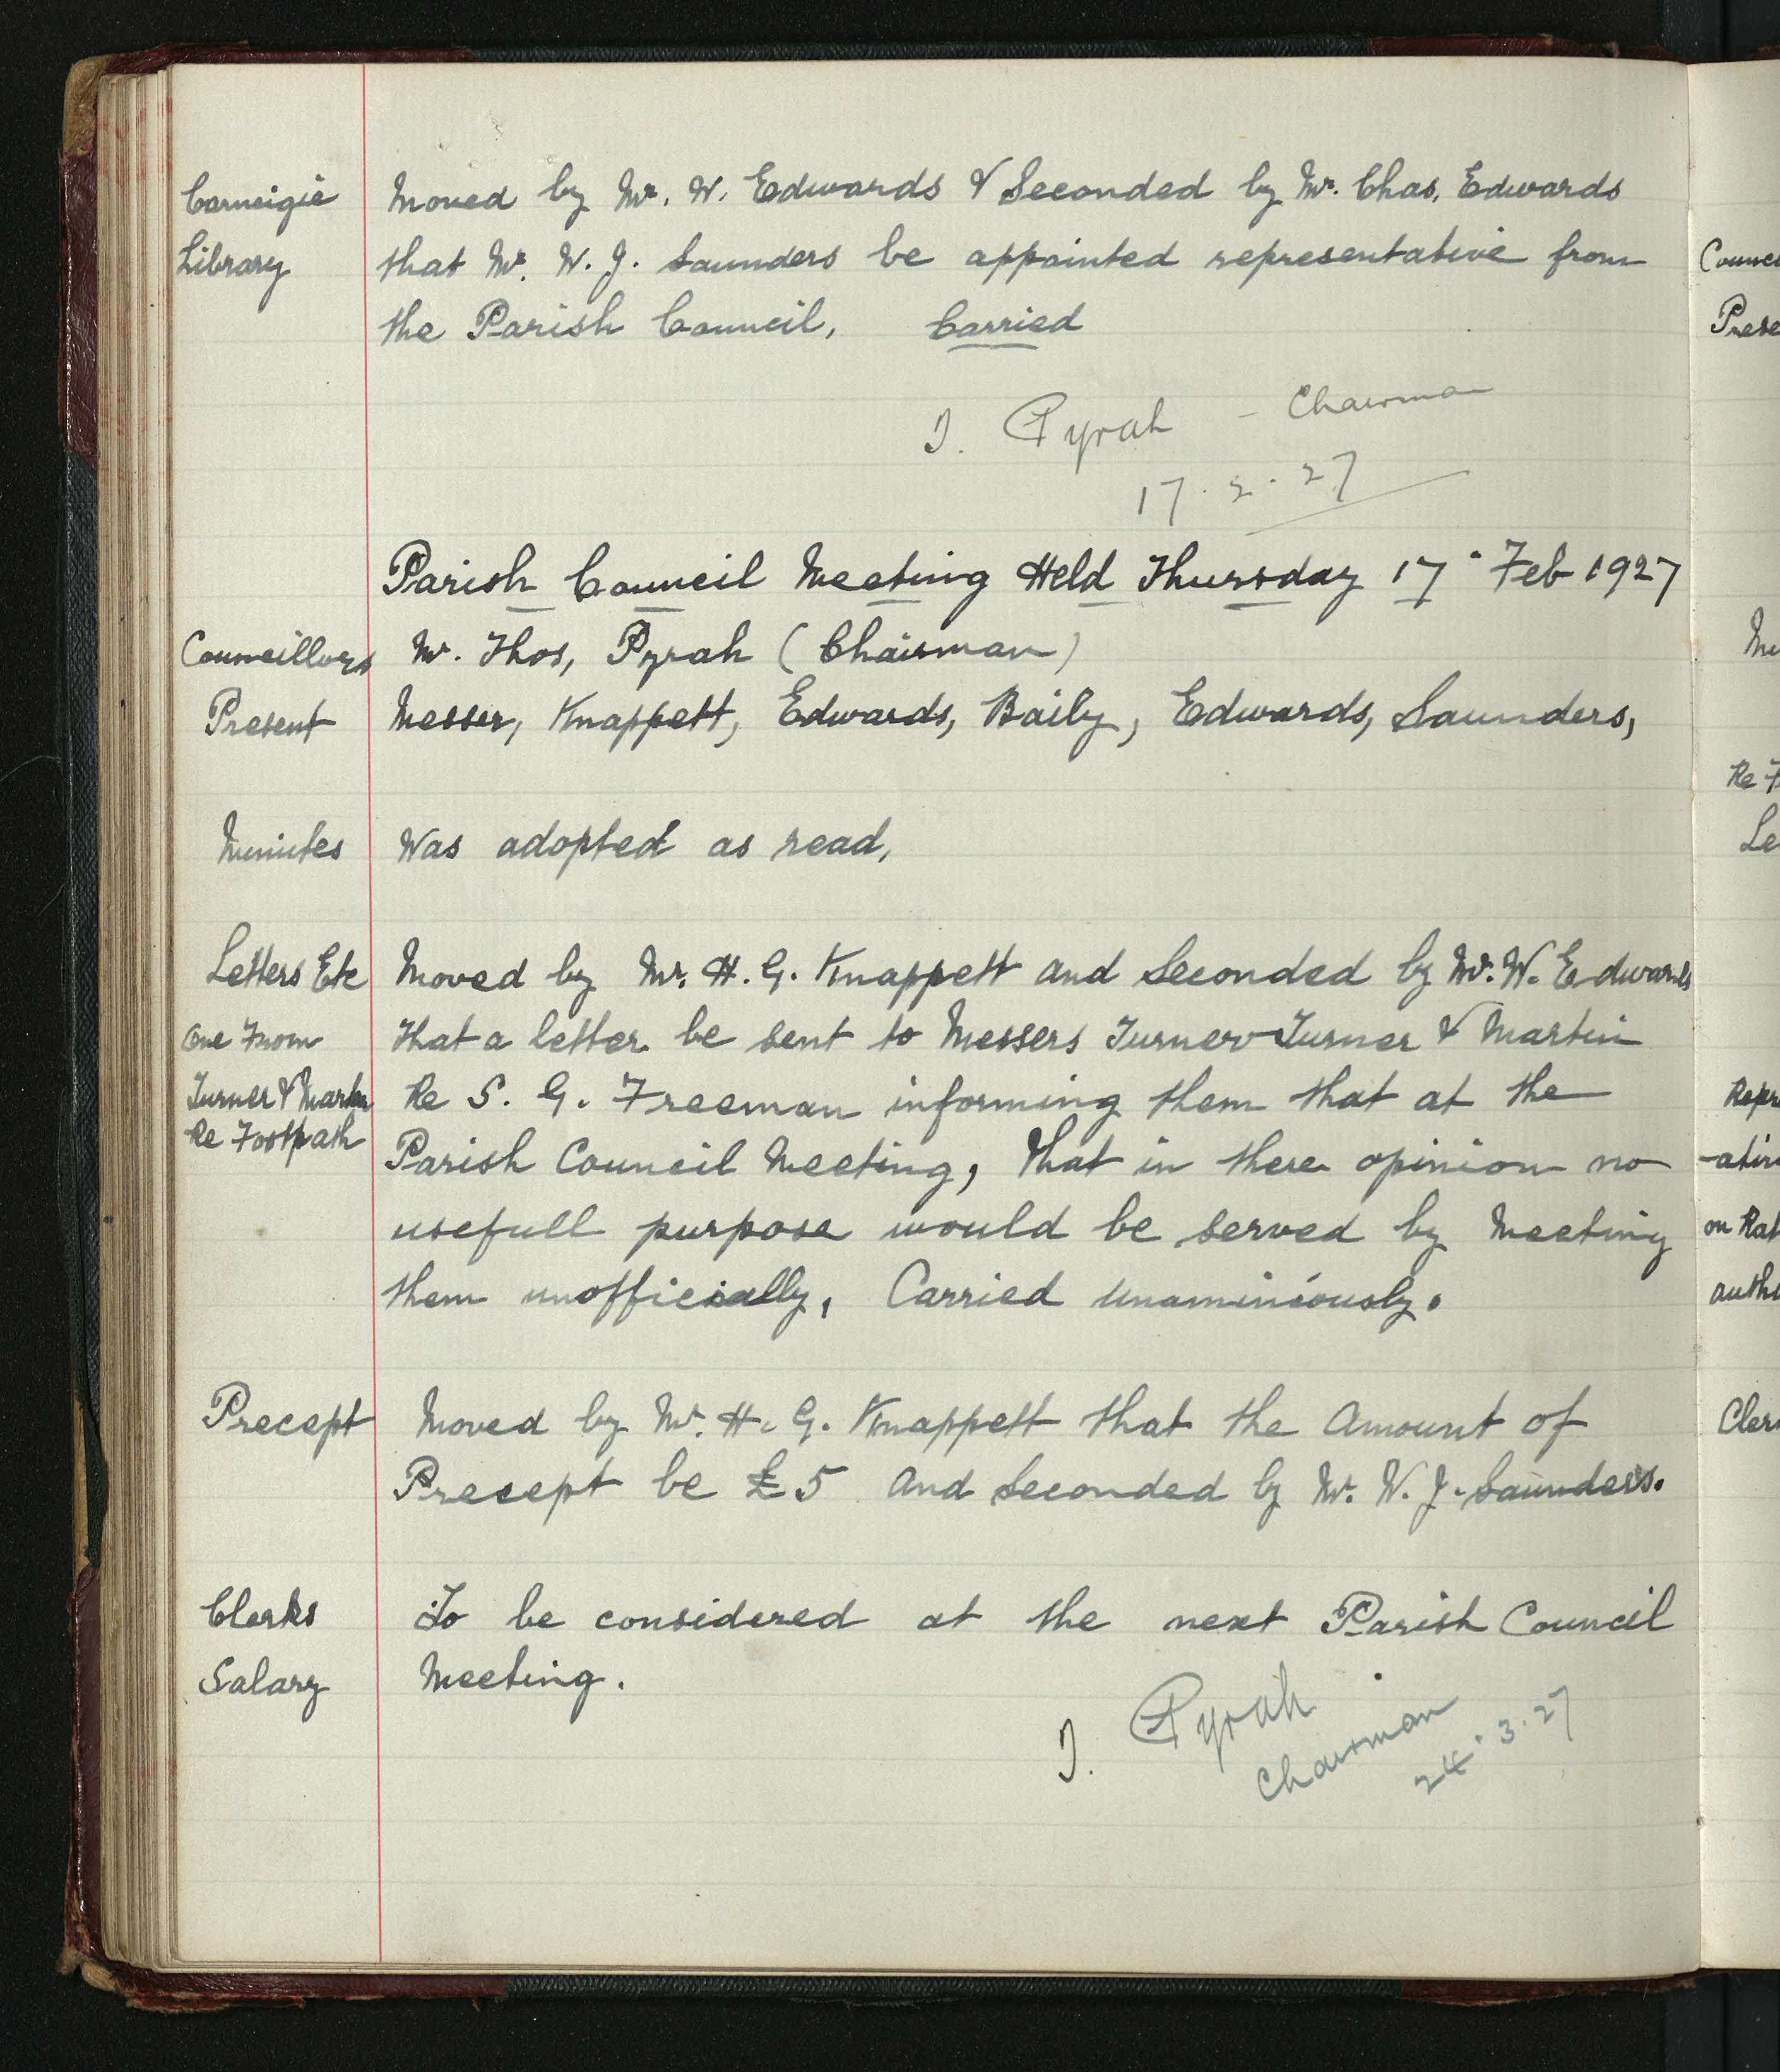 Carneigie Moved by Mr. W. Edwards & Seconded by Mr. Chas. Edwards
Library that Mr. W. J. Saunders be appointed representative from
the Parish Council, Carried
T. Pyrah - Chairman
17.2.27
Parish Council Meeting Held Thursday 17 Feb 1927
Councillors Mr. Thos, Pyrah (Chairman)
Present Messer, Knappett, Edwards, Baily, Edwards, Saunders,
Minutes Was adopted as read,
Letters Etc Moved by Mr. H. G. Knappett and Seconded by Mr. W. Edwards
One From that a letter be sent to Messers Turner Turner & Martin
Turner & Martin Re S. G. Freeman informing them that at the
Re Footpath Parish Council Meeting, that in there opinion no
usefull purpose would be served by Meeting
them unofficially, Carried Unaminiously.
Precept Moved by Mr. H. G. Knappett that the Amount of
Precept be £5 and Seconded by Mr. W. J. Saunders.
Clerks To be considered at the next Parish Council
Salary Meeting.
T. Pyrah
Chairman
24.3.27
Re
on